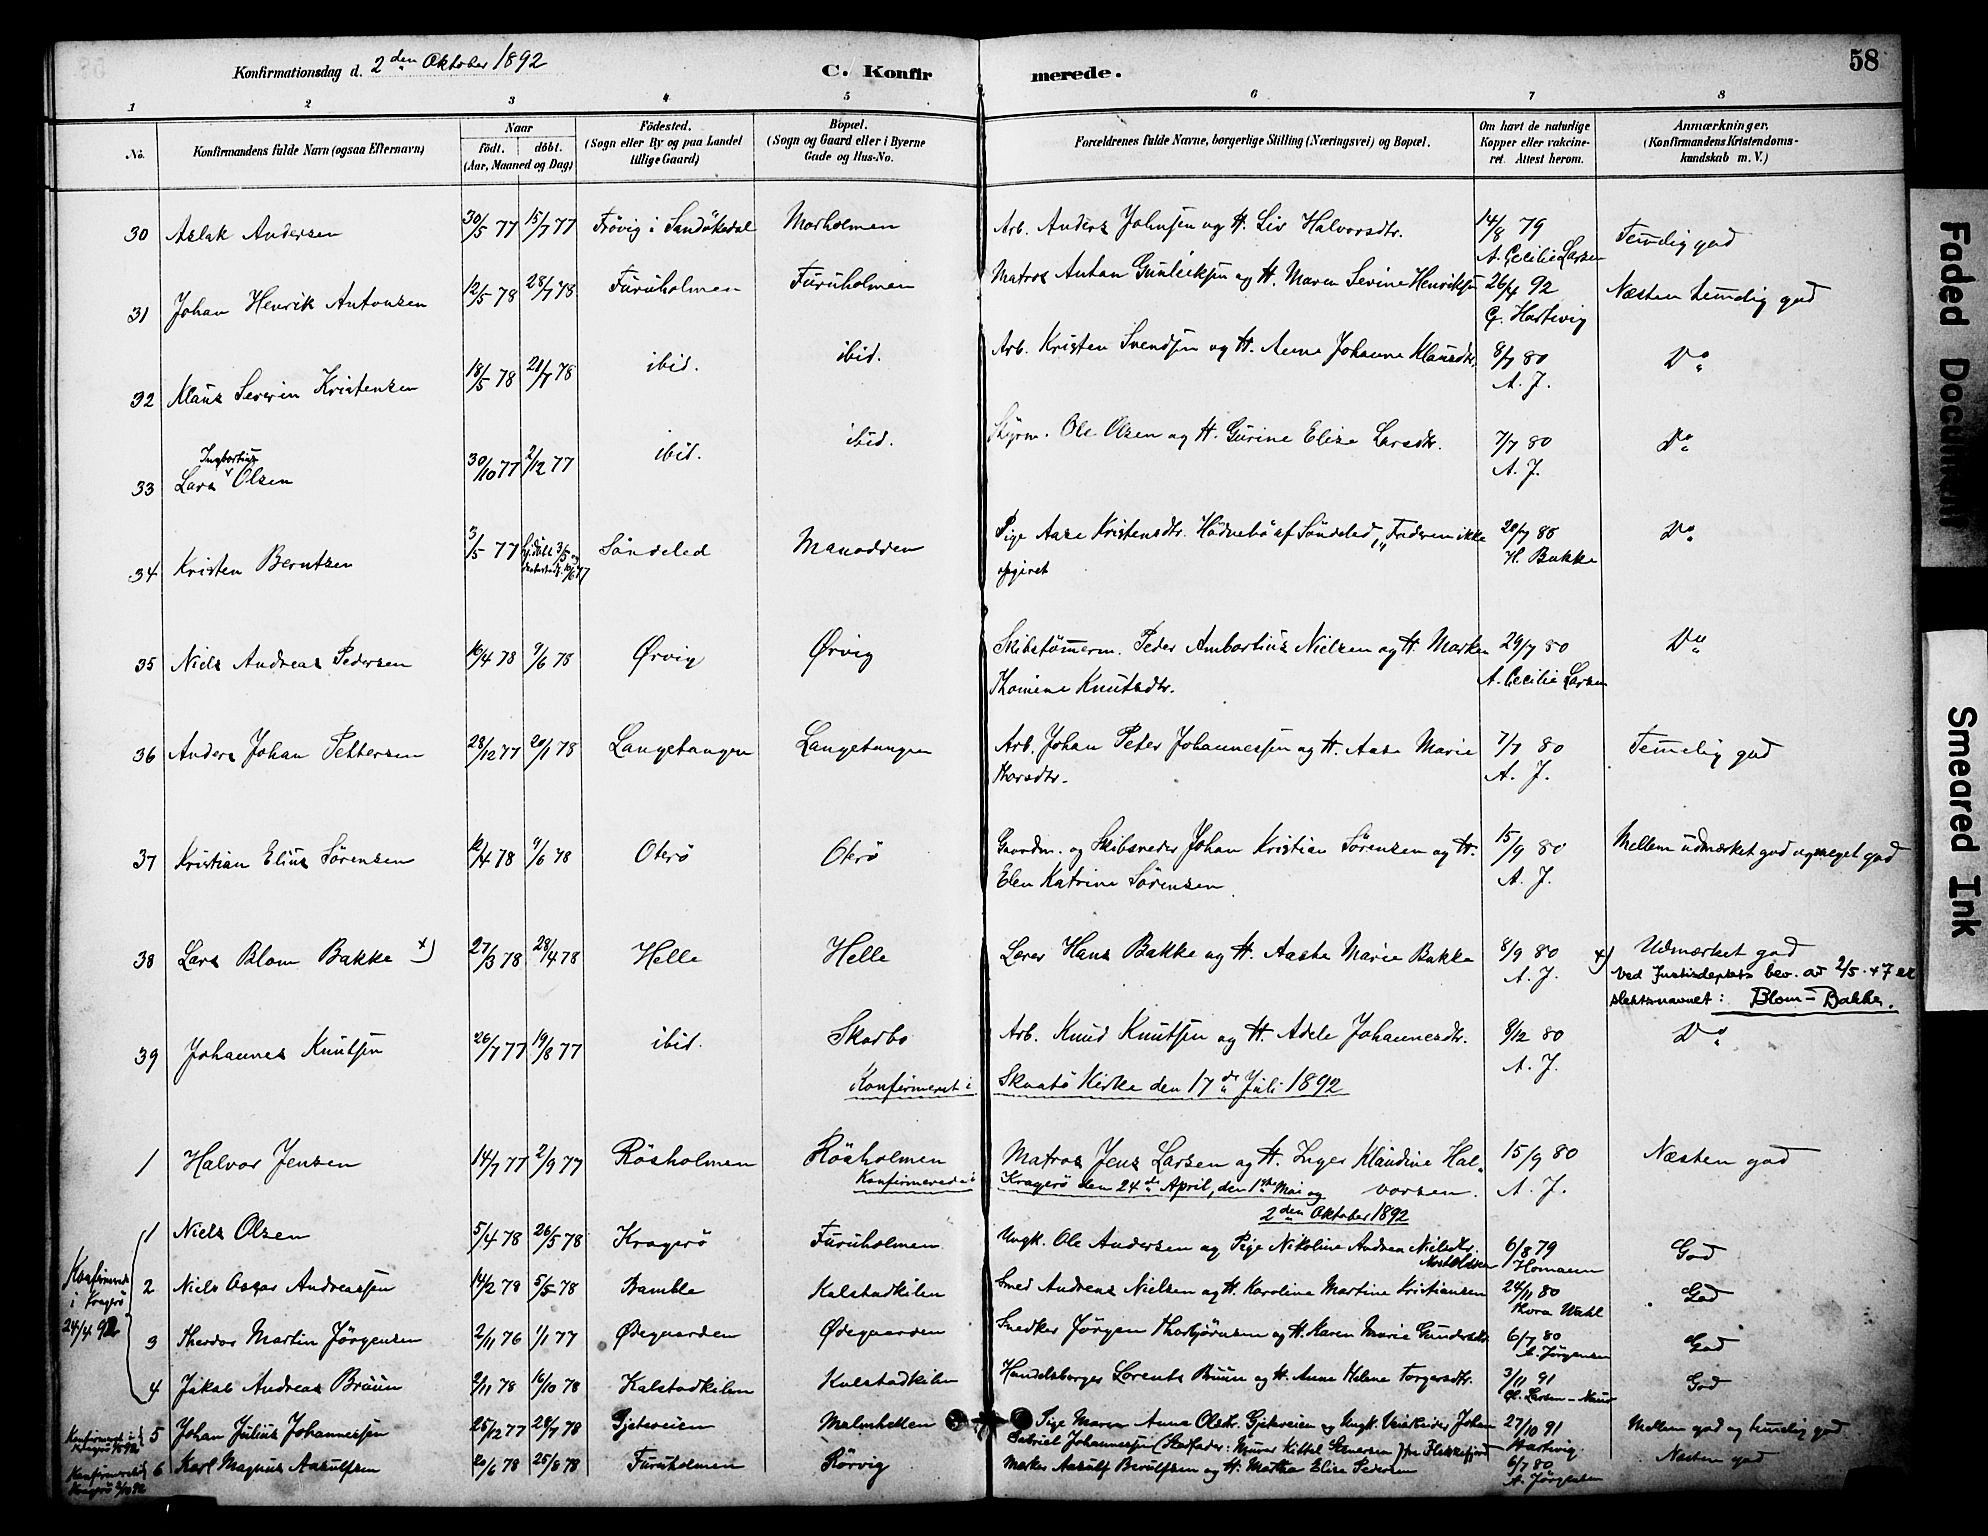 Konfirmationsdag d. 2den Oktober 1892 C. Konfirmerede. 58
1 2 3 4 5 6 7 8
No. Konfirmandens fulde Navn (ogsaa Efternavn) Naar Født. døbt. (Aar, Maaned og Dag) Fødested. (Sogn eller By og paa Landet tillige Gaard) Bopæl. (Sogn og Gaard eller i Byerne Gade og Hus-No. Forældrenes fulde Navne, borgerlige Stilling (Næringsvei) og Bopæl. Om havt de naturlige Kopper eller vakcineret. Attest herom. Anmærkninger. (Konfirmandens Kristendomskundskab m. V.)
30 Aslak Andersen 30/5 77 15/7 77 Frövig i Sandökedal Morholmen Arb. Anders Johnsen og H. Liv Halvorsdtr. 14/8 79 Temelig god
A. Cecilie Larsen
31 Johan Henrik Antonsen 12/5 78 28/7 78 Furuholmen Furuholmen Matros Anton Gunleiksen og H. Maren Sevine Henriksen 26/4 92 Næsten temelig god
G. Hartvig
32 Klaus Severin Kristensen 18/5 78 28/7 78 ibid. ibid. Arb. Kristen Svendsen og H. Anne Johanne Klausdtr. 8/7 80 Do
A. J.
33 Lars Ingbertius Olsen 30/10 77 2/12 77 ibid. ibid. Styrm. Ole Olsen og H. Gurine Elise Larsdtr. 7/7 80 Do
A. J.
34 Kristen Berntsen 3/5 77 Hj.döbt 3/5 og 10/6 77 Söndeled Manodden Pige Aase Kristensdtr. Hödnebö af Söndeled, "Faderen ikke 28/7 80 Do
opgivet H. Bakke
35 Niels Andreas Pedersen 10/4 78 9/6 78 Ørvig Ørvig Skibstömerm. Peder Ambortius Nielsen og H. Marken 29/7 80 Do
Thomine Knutsdtr. A. Cecilie Larsen
36 Anders Johan Pettersen 28/12 77 20/1 78 Langetangen Langetangen Arb. Johan Peter Johannessen og H. Aase Marie 7/7 80 Temelig god
Thorsdtr. A. J.
37 Kristian Elius Sörensen 12/4 78 9/6 78 Oterö Oterö Gaardm. og Skibsreder Johan Kristian Sörensen og H. 15/9 80 Mellem udmærket god og meget god
Elen Katrine Sörensen A. J.
38 Lars Blom Bakke x) 27/3 78 28/4 78 Helle Helle Lærer Hans Bakke og H. Aaste Marie Bakke 8/9 80 Udmærket god
A. J. x) Ved Justisdeptets bev. av 2/5.47 er
slektsnavnet: Blom-Bakke.
39 Johannes Knutsen 26/7 77 19/8 77 ibid. Skarbo Arb. Knud Knutsen og H. Adele Johannesdtr. 8/12 80 Do
A. J.
Konfirmeret i Skaatö Kirke den 17de Juli 1892
1 Halvor Jensen 14/7 77 2/9 77 Rösholmen Rösholmen Matros Jens Larsen og H. Inger Klaudine Halvorsen. 15/9 80 Næsten god
A. J.
Konfirmerede i Kragerö den 24de April, den 1ste Mai og
2den Oktober 1892
Konfirmeret i Kragerö 24/4 92
1 Niels Olsen 5/4 78 26/5 78 Kragerö Furuholmen Ungk. Ole Andersen og Pige Nikoline Andrea Nielsdtr. 6/8 79 God
Homann
2 Niels Oscar Andreassen 14/2 78 5/5 78 Bamble Kalstadkilen Smed Andreas Nielsen og H. Karoline Martine Kristiansen 24/11 80 God
Thora Wahl
3 Theodor Martin Jörgensen 2/11 76 1/1 77 Ødegaarden Ødegaarden Snedker Jörgen Thorbjörnsen og H. Karen Marie Gundersdtr. 6/7 80 God
A. Jörgensen
4 Jakob Andreas Bruun 2/11 78 16/10 78 Kalstadkilen Kalstadkilen Handelsborger Lorents Bruun og H. Anne Helene Torgersdtr. 3/11 91 God
Konfirmeret i Kragerö 5 Johan Julius Johannessen 25/12 77 28/7 78 Gjeteveien Malmhetten Pige Maren Anna Olsdtr. Gjetveien og Ungk. Johan 27/10 91 Mellem god og temelig god
Gabriel Johannessen (Stedfader: Murer Kittel Stenersen) fra Flekkefjord Hartvig.
Konfirmeret i Kragerö 6 Karl Magnus Aasulfsen 20/6 78 25/8 78 Furuholmen Rörvig Aasulf Berulfsen og H. Marthe Elise Pedersen 6/7 80 Næsten god
A. Jörgensen
Faded Document
Smeared Ink